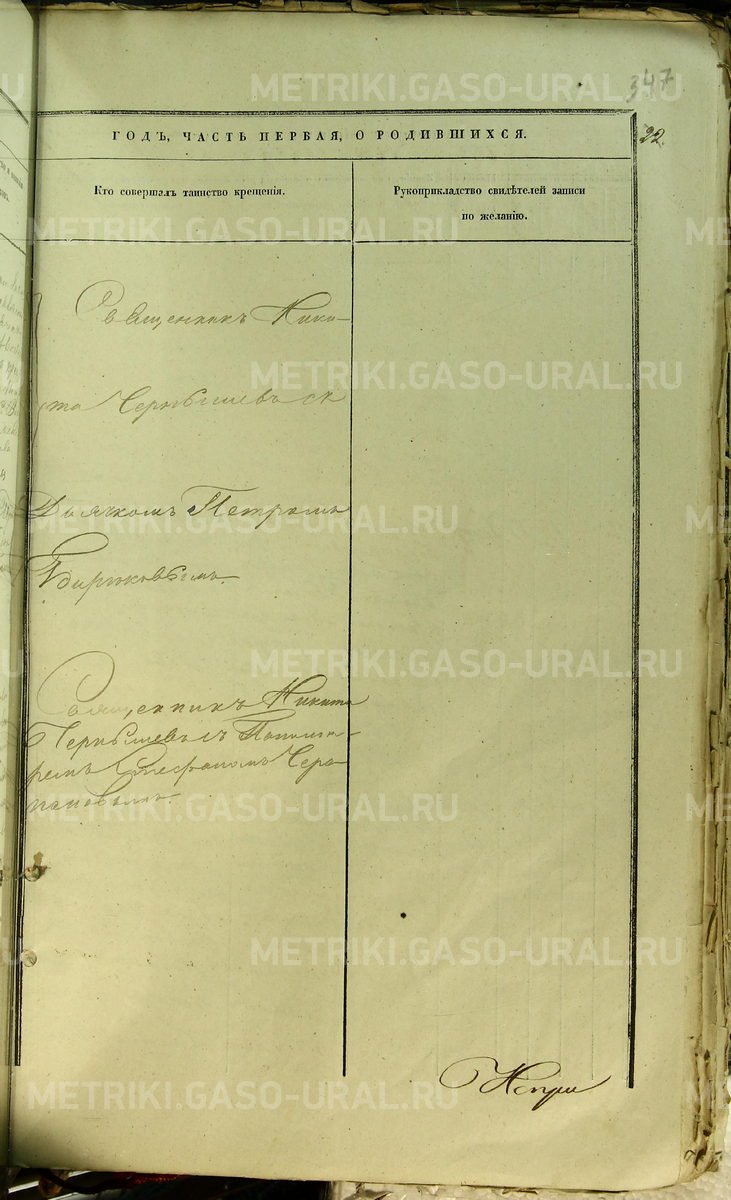 347
ГОДЪ, ЧАСТЬ ПЕРВАЯ, О РОДИВШИХСЯ.
22.
Кто совершалъ таинство крещенія.
Рукоприкладство свидѣтелей записи
по желанію.
Священникъ Ники-
та Чернышевъ съ
Дьячкомъ Петромъ
Бирюковымъ.
Священникъ Никита
Чернышевъ съ Понома-
ремъ Стефаномъ Чере-
пановымъ.
METRIKI.GASO-URAL.RU